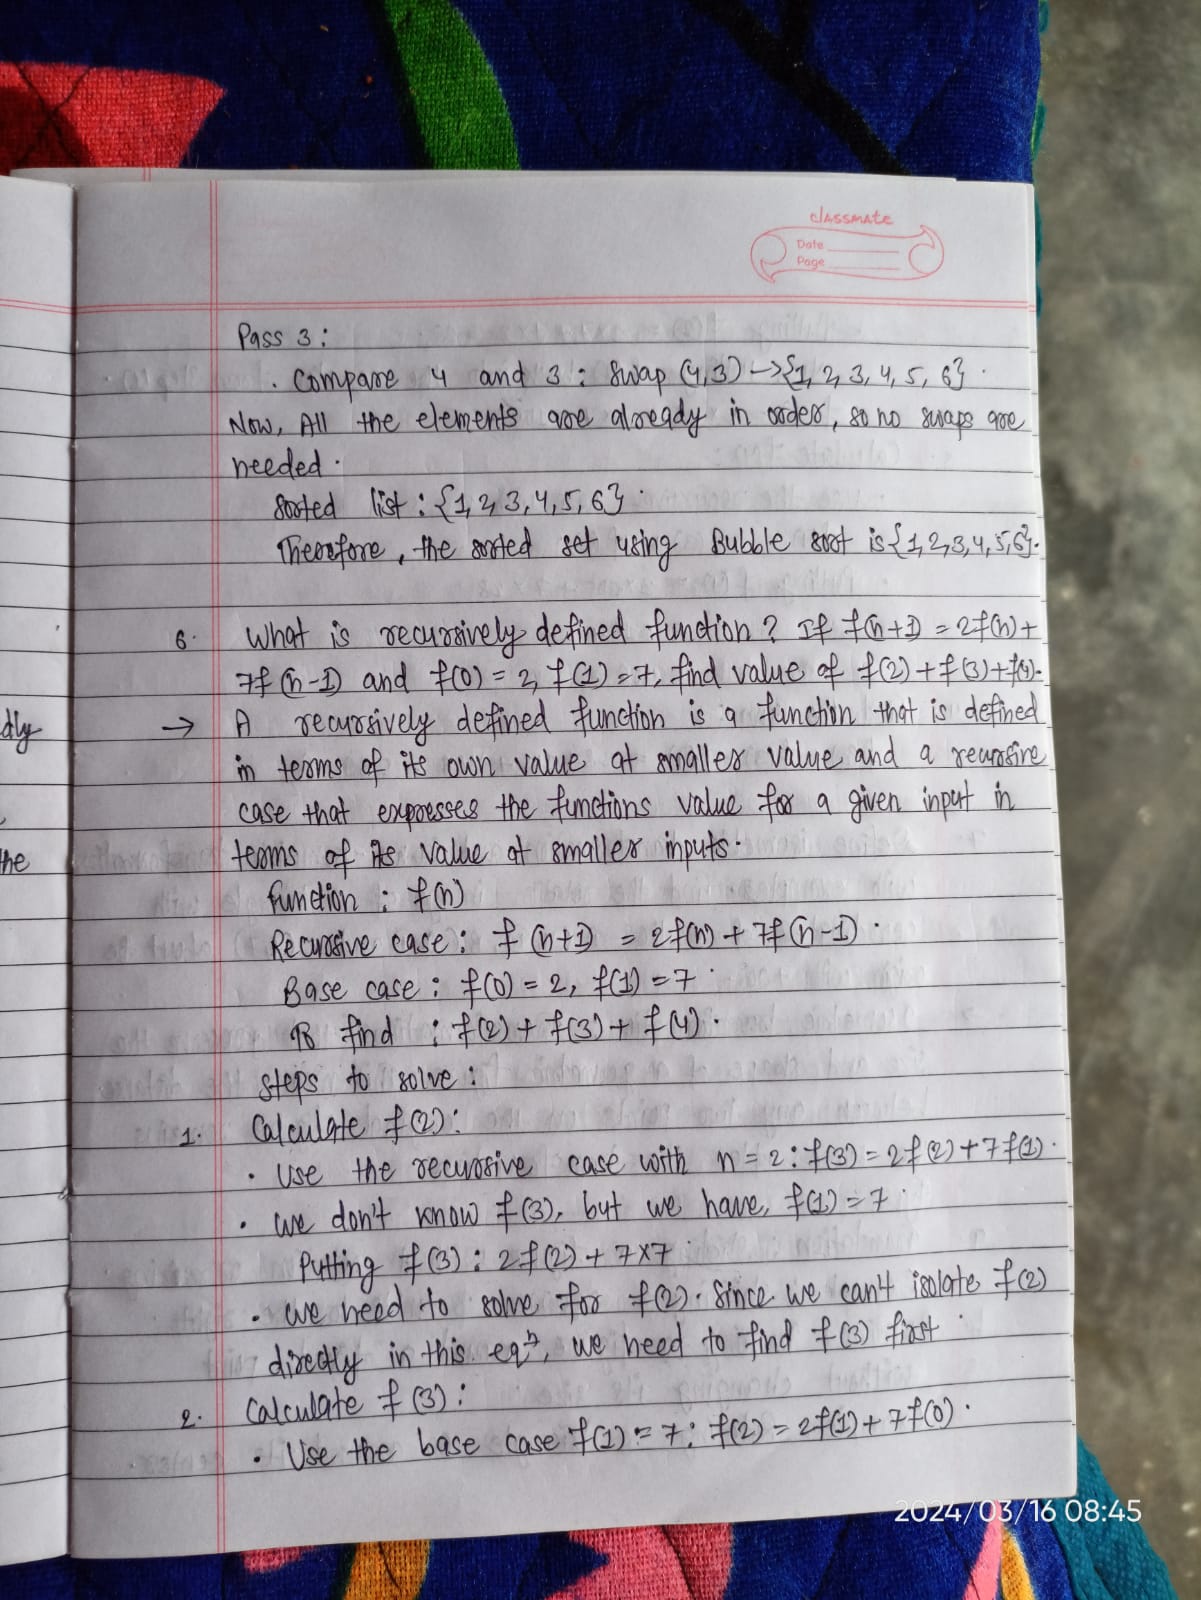 classmate
Date
Page
Pass 3:
. Compare 4 and 3 : Swap (4,3) → {1, 2, 3, 4, 5, 6} .
Now, All the elements are already in order, so no swaps are
needed .
Sorted list : {1, 2, 3, 4, 5, 6} .
Therefore, the sorted set using Bubble sort is {1, 2, 3, 4, 5, 6}.
6. What is recursively defined function ? If f(n+1) = 2f(n) +
7f(n-1) and f(0) = 2, f(1) = 7, find value of f(2) + f(3) + f(4).
dly
→ A recursively defined function is a function that is defined
in terms of its own value at smaller value and a recursive
case that expresses the functions value for a given input in
the
terms of its value at smaller inputs.
function : f(n)
Recursive case : f(n+1) = 2f(n) + 7f(n-1) .
Base case : f(0) = 2, f(1) = 7 .
To find : f(2) + f(3) + f(4) .
Steps to solve :
1. Calculate f(2):
. Use the recursive case with n = 2 : f(3) = 2f(2) + 7f(1) .
. we don't know f(3), but we have, f(1) = 7 .
Putting f(3) : 2f(2) + 7x7 .
. we need to solve for f(2). Since we can't isolate f(2)
directly in this eqⁿ, we need to find f(3) first .
2. Calculate f(3):
. Use the base case f(1) = 7 : f(2) = 2f(1) + 7f(0) .
2024/03/16 08:45